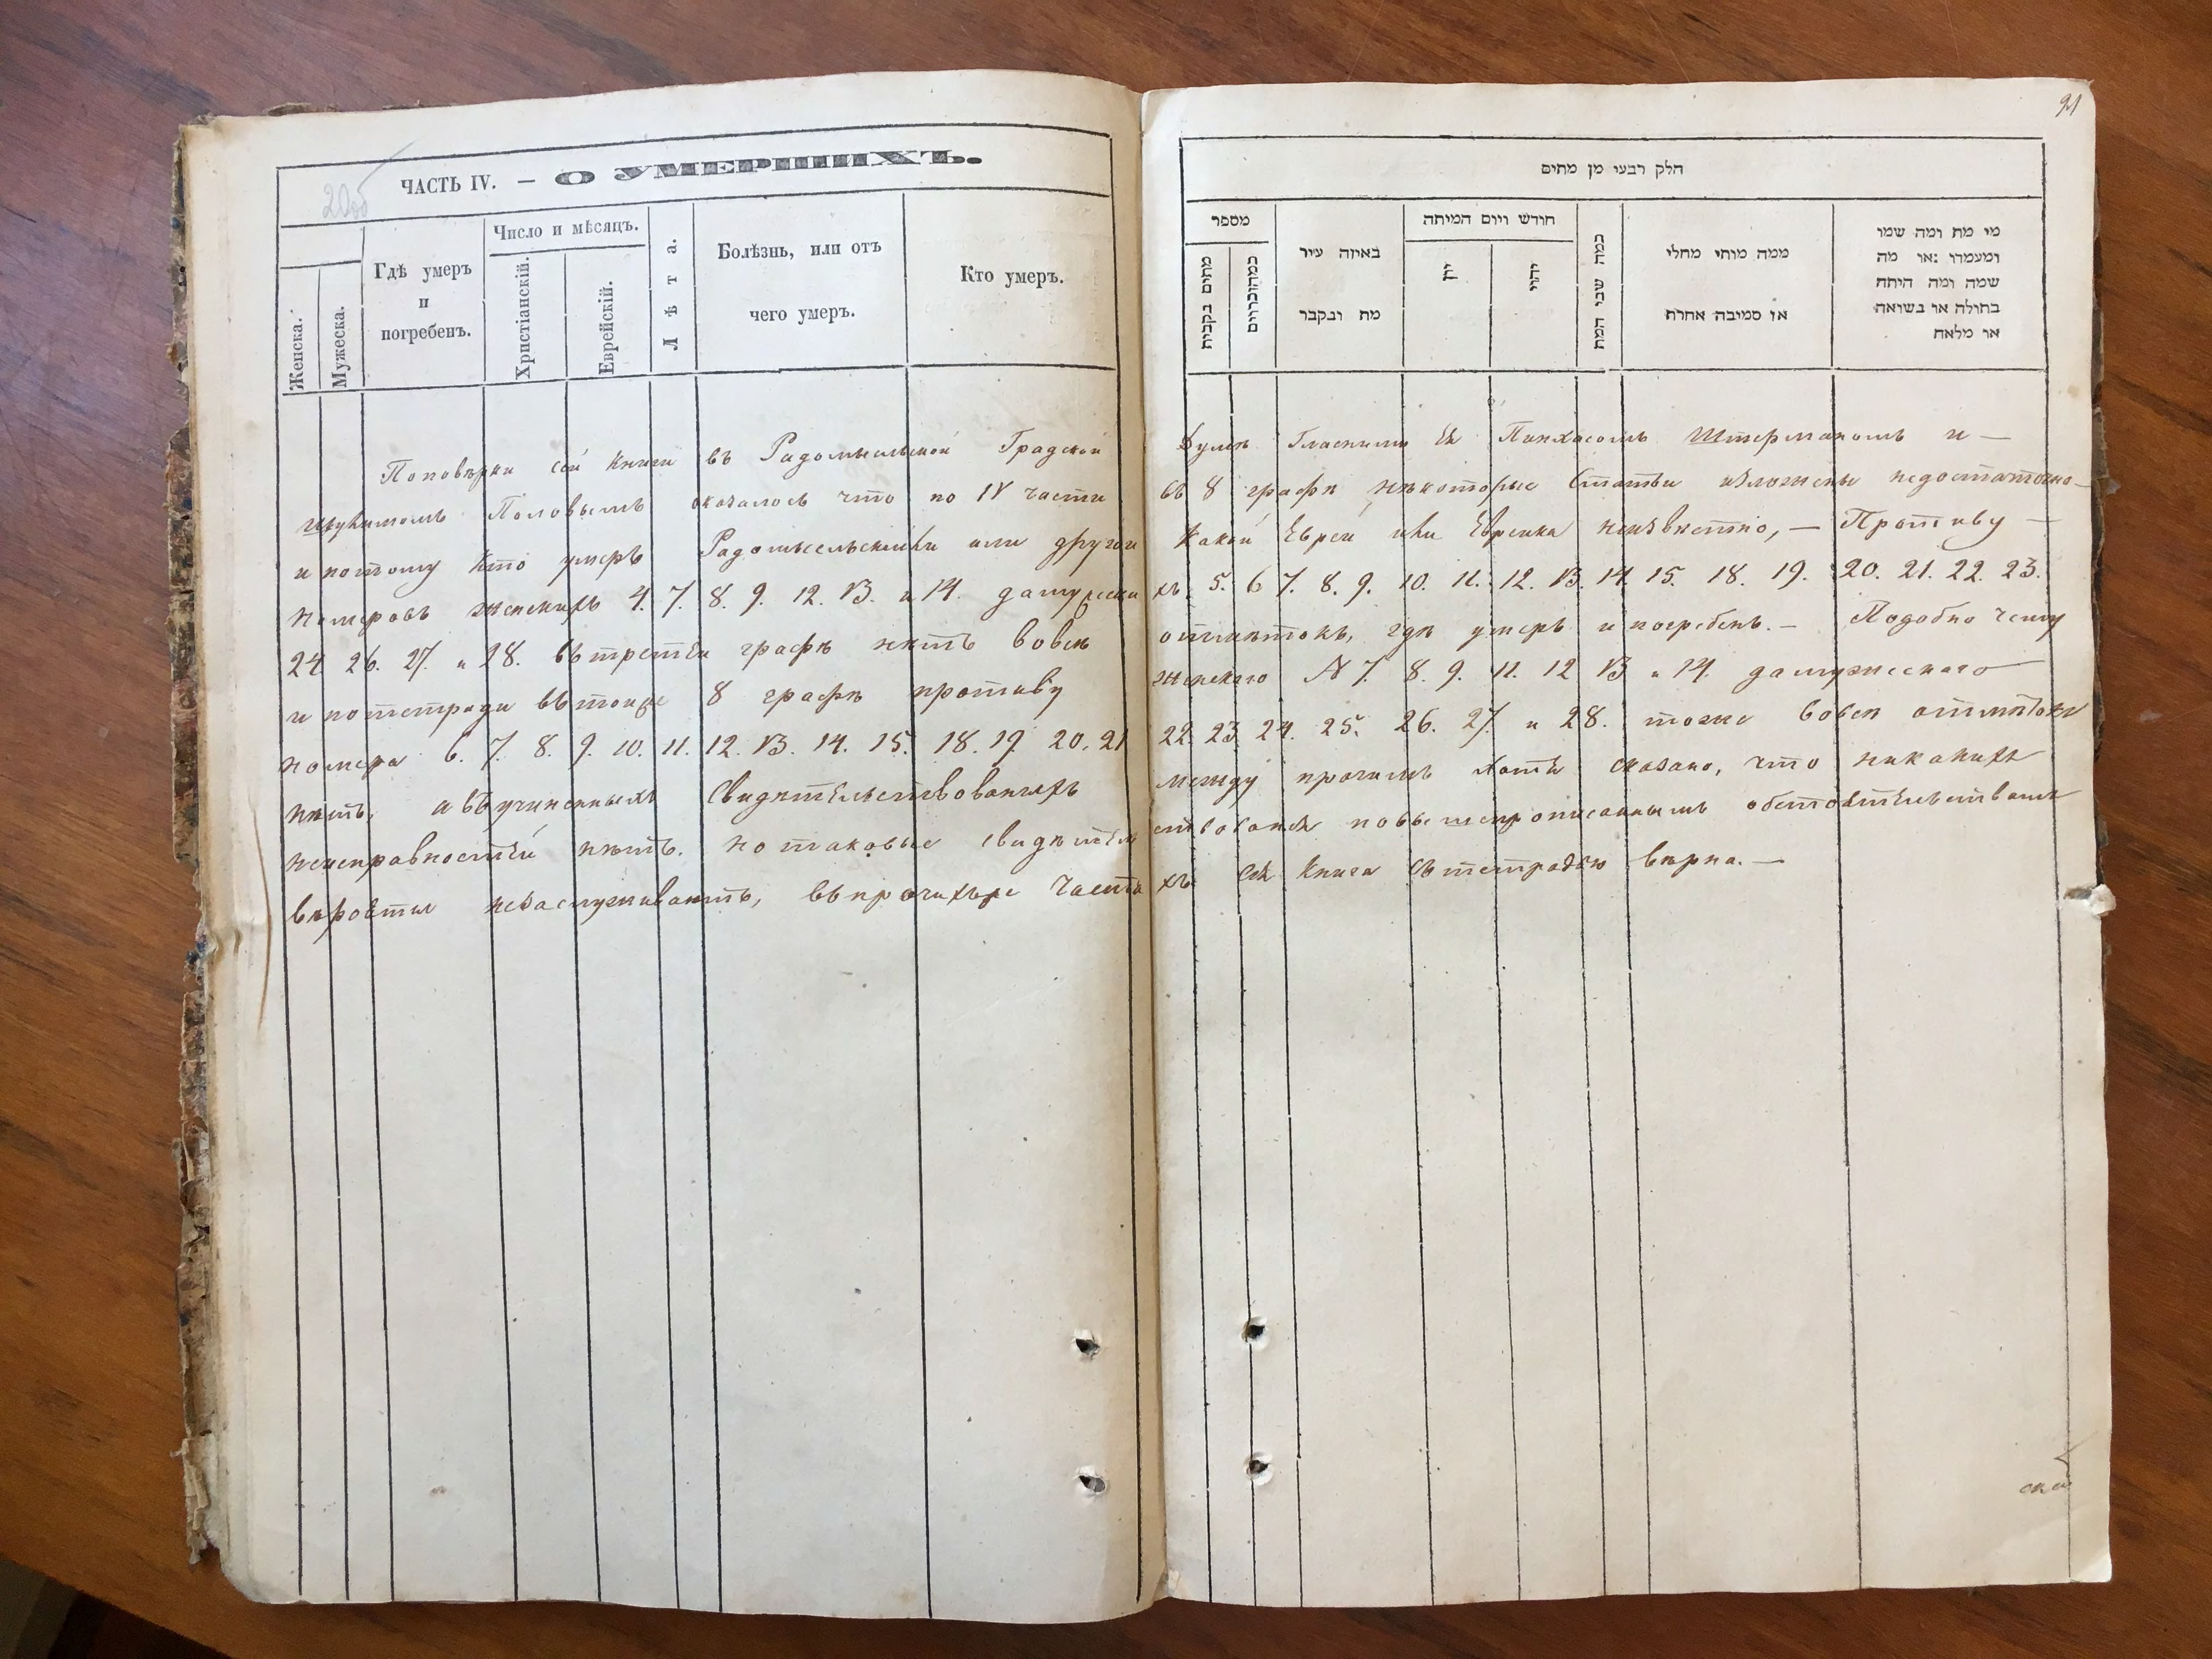 20об
ЧАСТЬ IV. — О УМЕРШИХЪ.
Женска.
Мужеска.
Гдѣ умеръ
и
погребенъ.
Число и мѣсяцъ.
Христіанскій.
Еврейскій.
Лѣта.
Болѣзнь, или отъ
чего умеръ.
Кто умеръ.
21
חלק רבעי מן מתים
מספר
מתים בקבות
באיזה עיר
מת ונקבר
חודש ויום המיתה
יוון
יהודי
כמה שני המת
ממה מותי מחלי
או סמיבה אחרת
מי מת ומה שמו
ומעמדו :או מה
שמה ומה היתה
בתולה או בשואה
או מלאח
Поповѣрки сей книги въ Радомысльской Градской Думѣ Гласными Пинхасомъ Штерманомъ и —
Половымъ оказалось что по IV части въ 8 графѣ нѣкоторые статьи изложены недостаточно
и потому кто умеръ Радомысльскій ли или другой какой Еврей или Еврейка неизвѣстно, — Противу —
номеровъ женскихъ 4. 7. 8. 9. 12. 13. и 14. да мужескихъ 5. 6 7. 8. 9. 10. 11. 12. 13. 14. 15. 18. 19. 20. 21. 22. 23.
24 26. 27. и 28. въ третьи графѣ нѣтъ вовсѣ отмѣтокъ, гдѣ умеръ и погребенъ. — Подобно чему
и по тетради въ той же 8 графѣ противу женскаго № 7. 8. 9. 11. 12 13 и 14. да мужескаго
номера 6. 7. 8. 9. 10. 11. 12. 13. 14. 15. 18. 19. 20. 21 22. 23 24. 25. 26. 27. и 28. тоже вовсѣ отмѣтокъ
нѣтъ, а въ учиненныхъ свидѣтельствованіяхъ между прочимъ хотя сказано, что никакихъ
неисправностей нѣтъ. но таковые свидѣтельствованія по вышепрописаннымъ обстоятельствамъ
вѣроятія незаслуживаютъ, въ прочихъ же частяхъ сія книга съ тетрадью вѣрна. —